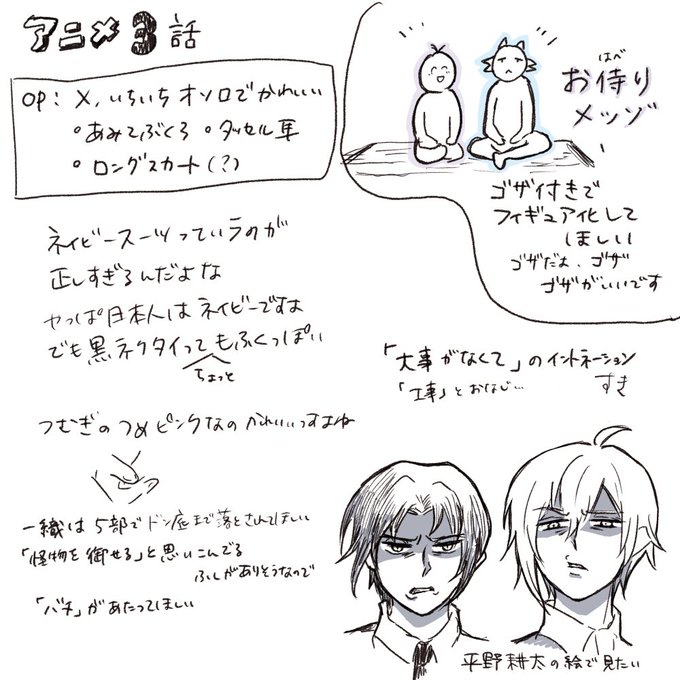 アニメ3話
OP: メ、いちいちオソロでかわいい
・あみてぶくろ ・タッセル耳
・ロングスカート(?)
お侍り
はべ
メッゾ
ゴザ付きで
フィギュア化して
ほしい
ゴザだよ、ゴザ
ゴザがいいです
ネイビースーツっていうのが
正しすぎるんだよな
やっぱ日本人はネイビーですよ
でも黒ネクタイってもふくっぽい
ちょっと
「大事がなくて」のイントネーション
「工事」とおなじ… すき
つむぎのつめピンクなのかわいいっすよね
一織は5部でドン底まで落とされてほしい
「怪物を御せる」と思いこんでる
ふしがありそうなので
「バチ」があたってほしい
平野耕太の絵で見たい